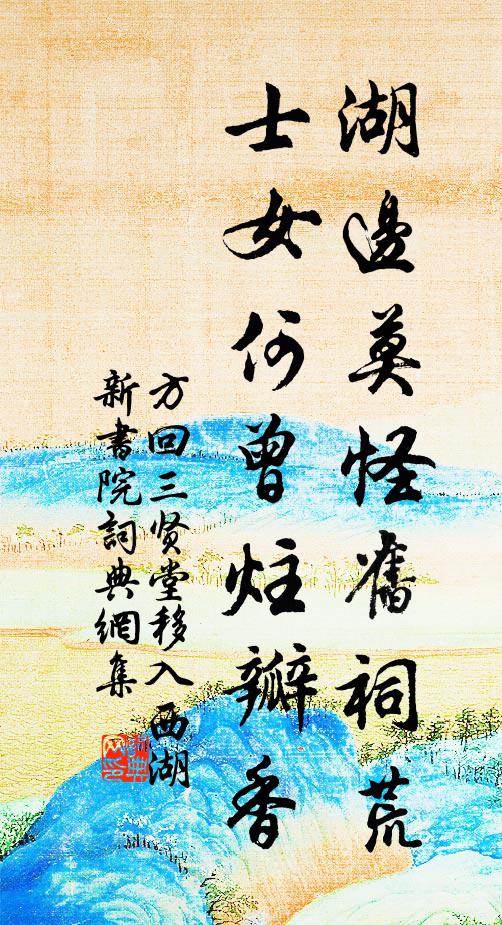 湖邊莫怪舊祠荒
士女何曾炷瓣香
方回三贤堂移入西湖
新書院詞典網集